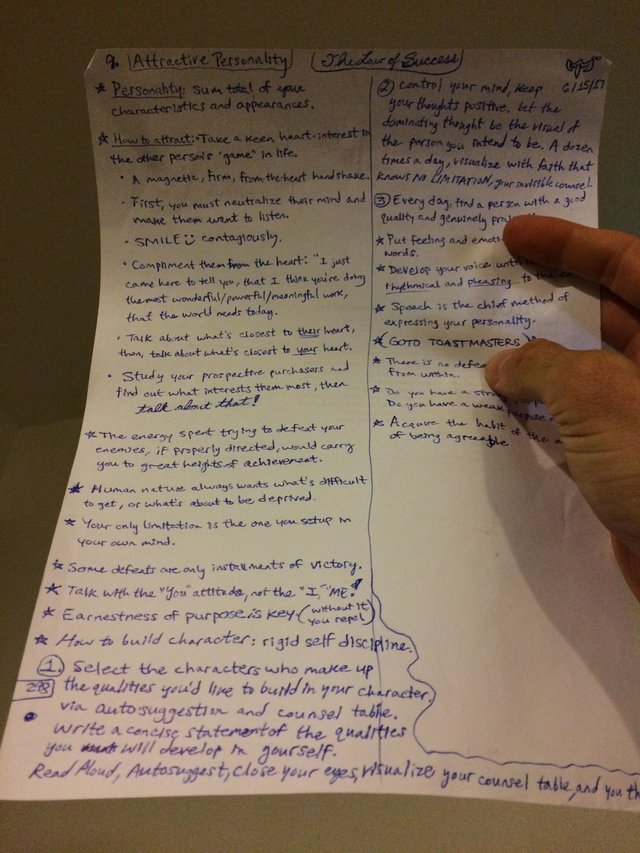 9. Attractive Personality
The Law of Success
★ Personality: sum total of your
characteristics and appearances.
★ How to attract: • Take a keen heart-interest in
the other person's "game" in life.
• A magnetic, firm, from the heart handshake.
• First, you must neutralize their mind and
make them want to listen.
• SMILE contagiously.
• Compliment them from the heart: "I just
came here to tell you, that I think you're doing
the most wonderful/powerful/meaningful work,
that the world needs today.
• Talk about what's closest to their heart,
then, talk about what's closest to your heart.
• Study your prospective purchasers and
find out what interests them most, then
talk about that!
★ The energy spent trying to defeat your
enemies, if properly directed, would carry
you to great heights of achievement.
★ Human nature always wants what's difficult
to get, or what's about to be deprived.
★ Your only limitation is the one you setup in
your own mind.
★ Some defeats are only installments of victory.
★ Talk with the "You" attitude, not the "I," "ME!"
★ Earnestness of purpose is key. (without it, you repel)
★ How to build character: rigid self discipline.
1. Select the characters who make up
298 the qualities you'd like to build in your character,
via autosuggestion and counsel table.
• Write a concise statement of the qualities
you will develop in yourself.
Read Aloud, Autosuggest, close your eyes, visualize your counsel table, and you
6/15/
② Control your mind, keep
your thoughts positive. Let the
dominating thought be the visual of
the person you intend to be. A dozen
times a day, visualize with faith that
knows NO LIMITATION, your invisible counsel.
③ Every day, find a person with a good
quality and genuinely
★ Put feeling and
words.
★ Develop your voice until
rhythmical and pleasing to the
★ Speech is the chief method of
expressing your personality.
★ GO TO TOASTMASTERS
★ There is no
from within.
★ Do you have a
Do you have a weak purpose
★ Acquire the habit of the
of being agreeable